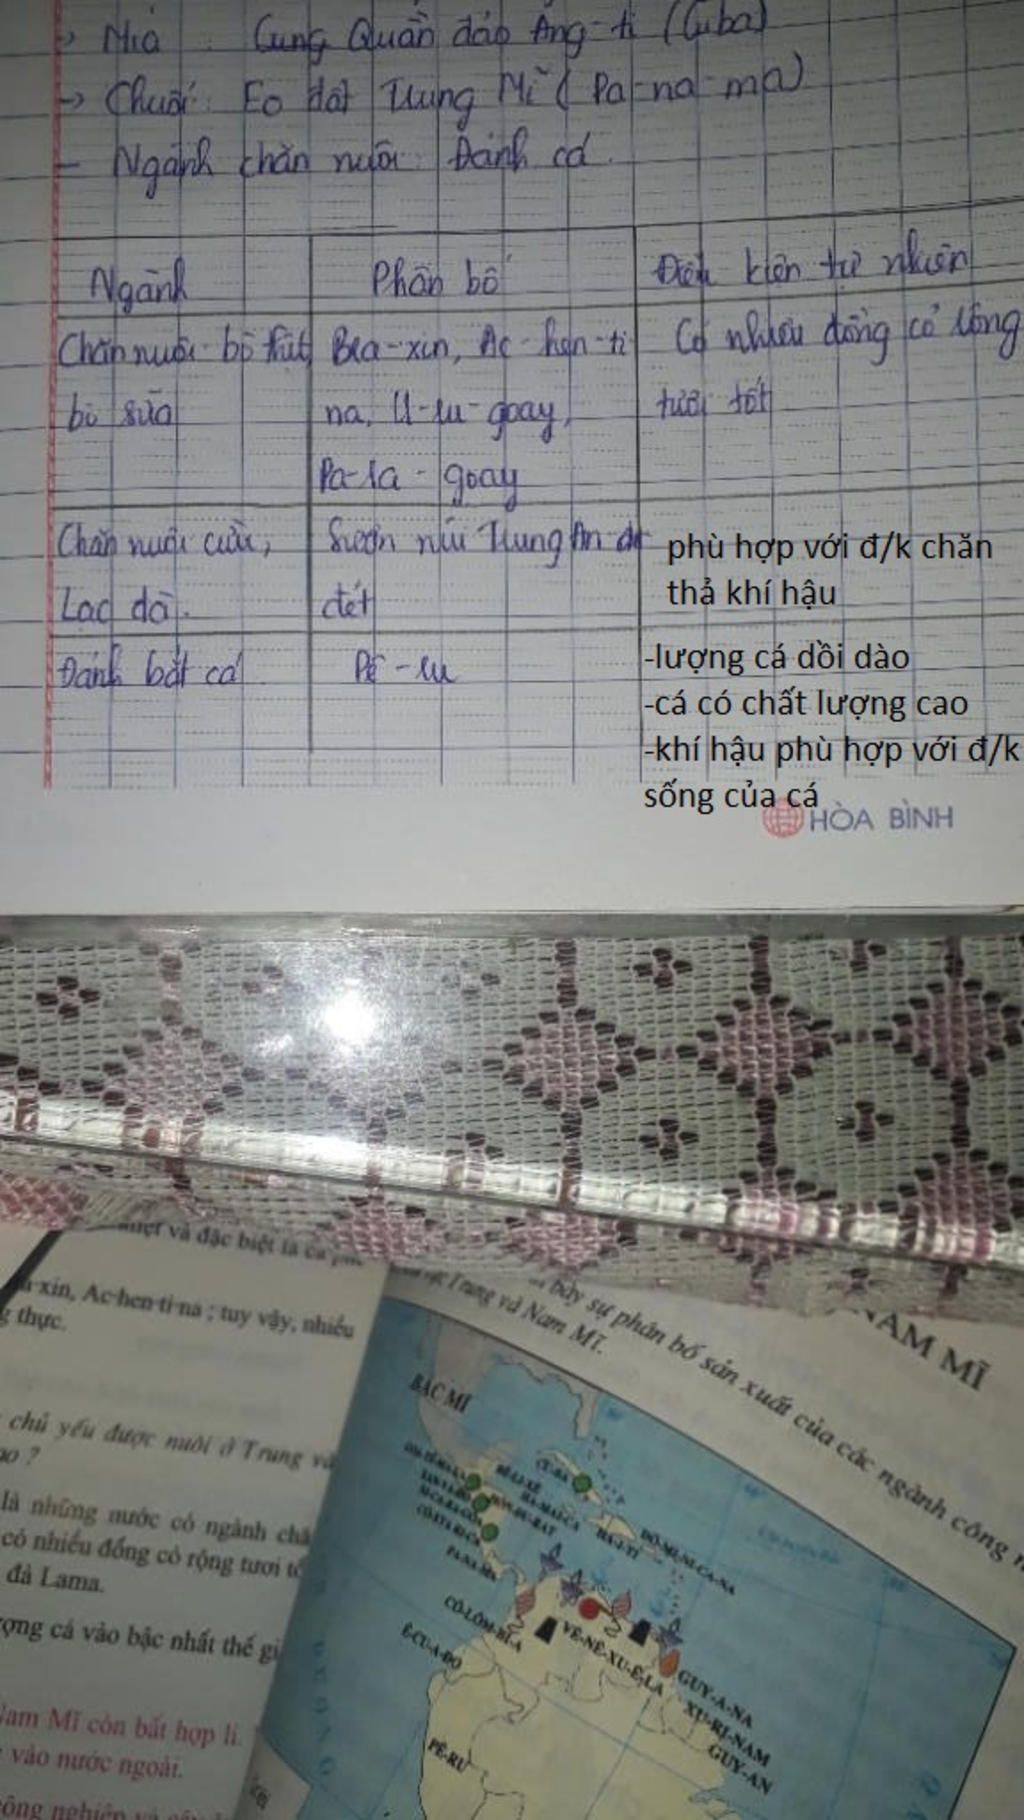 → Mía : Cung Quần đảo Ăng-ti (Cuba)
→ Chuối: Eo đất Trung Mĩ (Pa-na-ma)
- Ngành chăn nuôi. Đánh cá.
Ngành Phân bố Điều kiện tự nhiên
Chăn nuôi bò thịt, Bra-xin, Ac-hen-ti Có nhiều đồng cỏ rộng
bò sữa na, U-ru-goay, tươi tốt
Pa-ra-goay
Chăn nuôi cừu, Sườn núi Trung An-đét phù hợp với đ/k chăn
Lạc đà. đét thả khí hậu
Đánh bắt cá Pê-ru -lượng cá dồi dào
-cá có chất lượng cao
-khí hậu phù hợp với đ/k
sống của cá
HÒA BÌNH
và đặc biệt là cá
xin, Ac-hen-ti-na ; tuy vậy, nhiều
thực.
chủ yếu được nuôi ở Trung và
là những nước có ngành
có nhiều đồng cỏ rộng tươi
đà Lama.
cá vào bậc nhất thế
Nam Mĩ còn bất hợp lí.
vào nước ngoài.
công nghiệp
NAM MĨ
bày sự phân bố sản xuất của các ngành công
Trung và Nam Mĩ.
BẮC MĨ
CU-BA
HA-MAI-CA
HA-I-TI
ĐÔ-MI-NI-CA-NA
CÔ-XTA RI-CA
PA-NA-MA
CÔ-LÔM-BI-A
VÊ-NÊ-XU-Ê-LA
Ê-CU-A-ĐO
GUY-A-NA
XU-RI-NAM
GUY-AN
PÊ-RU